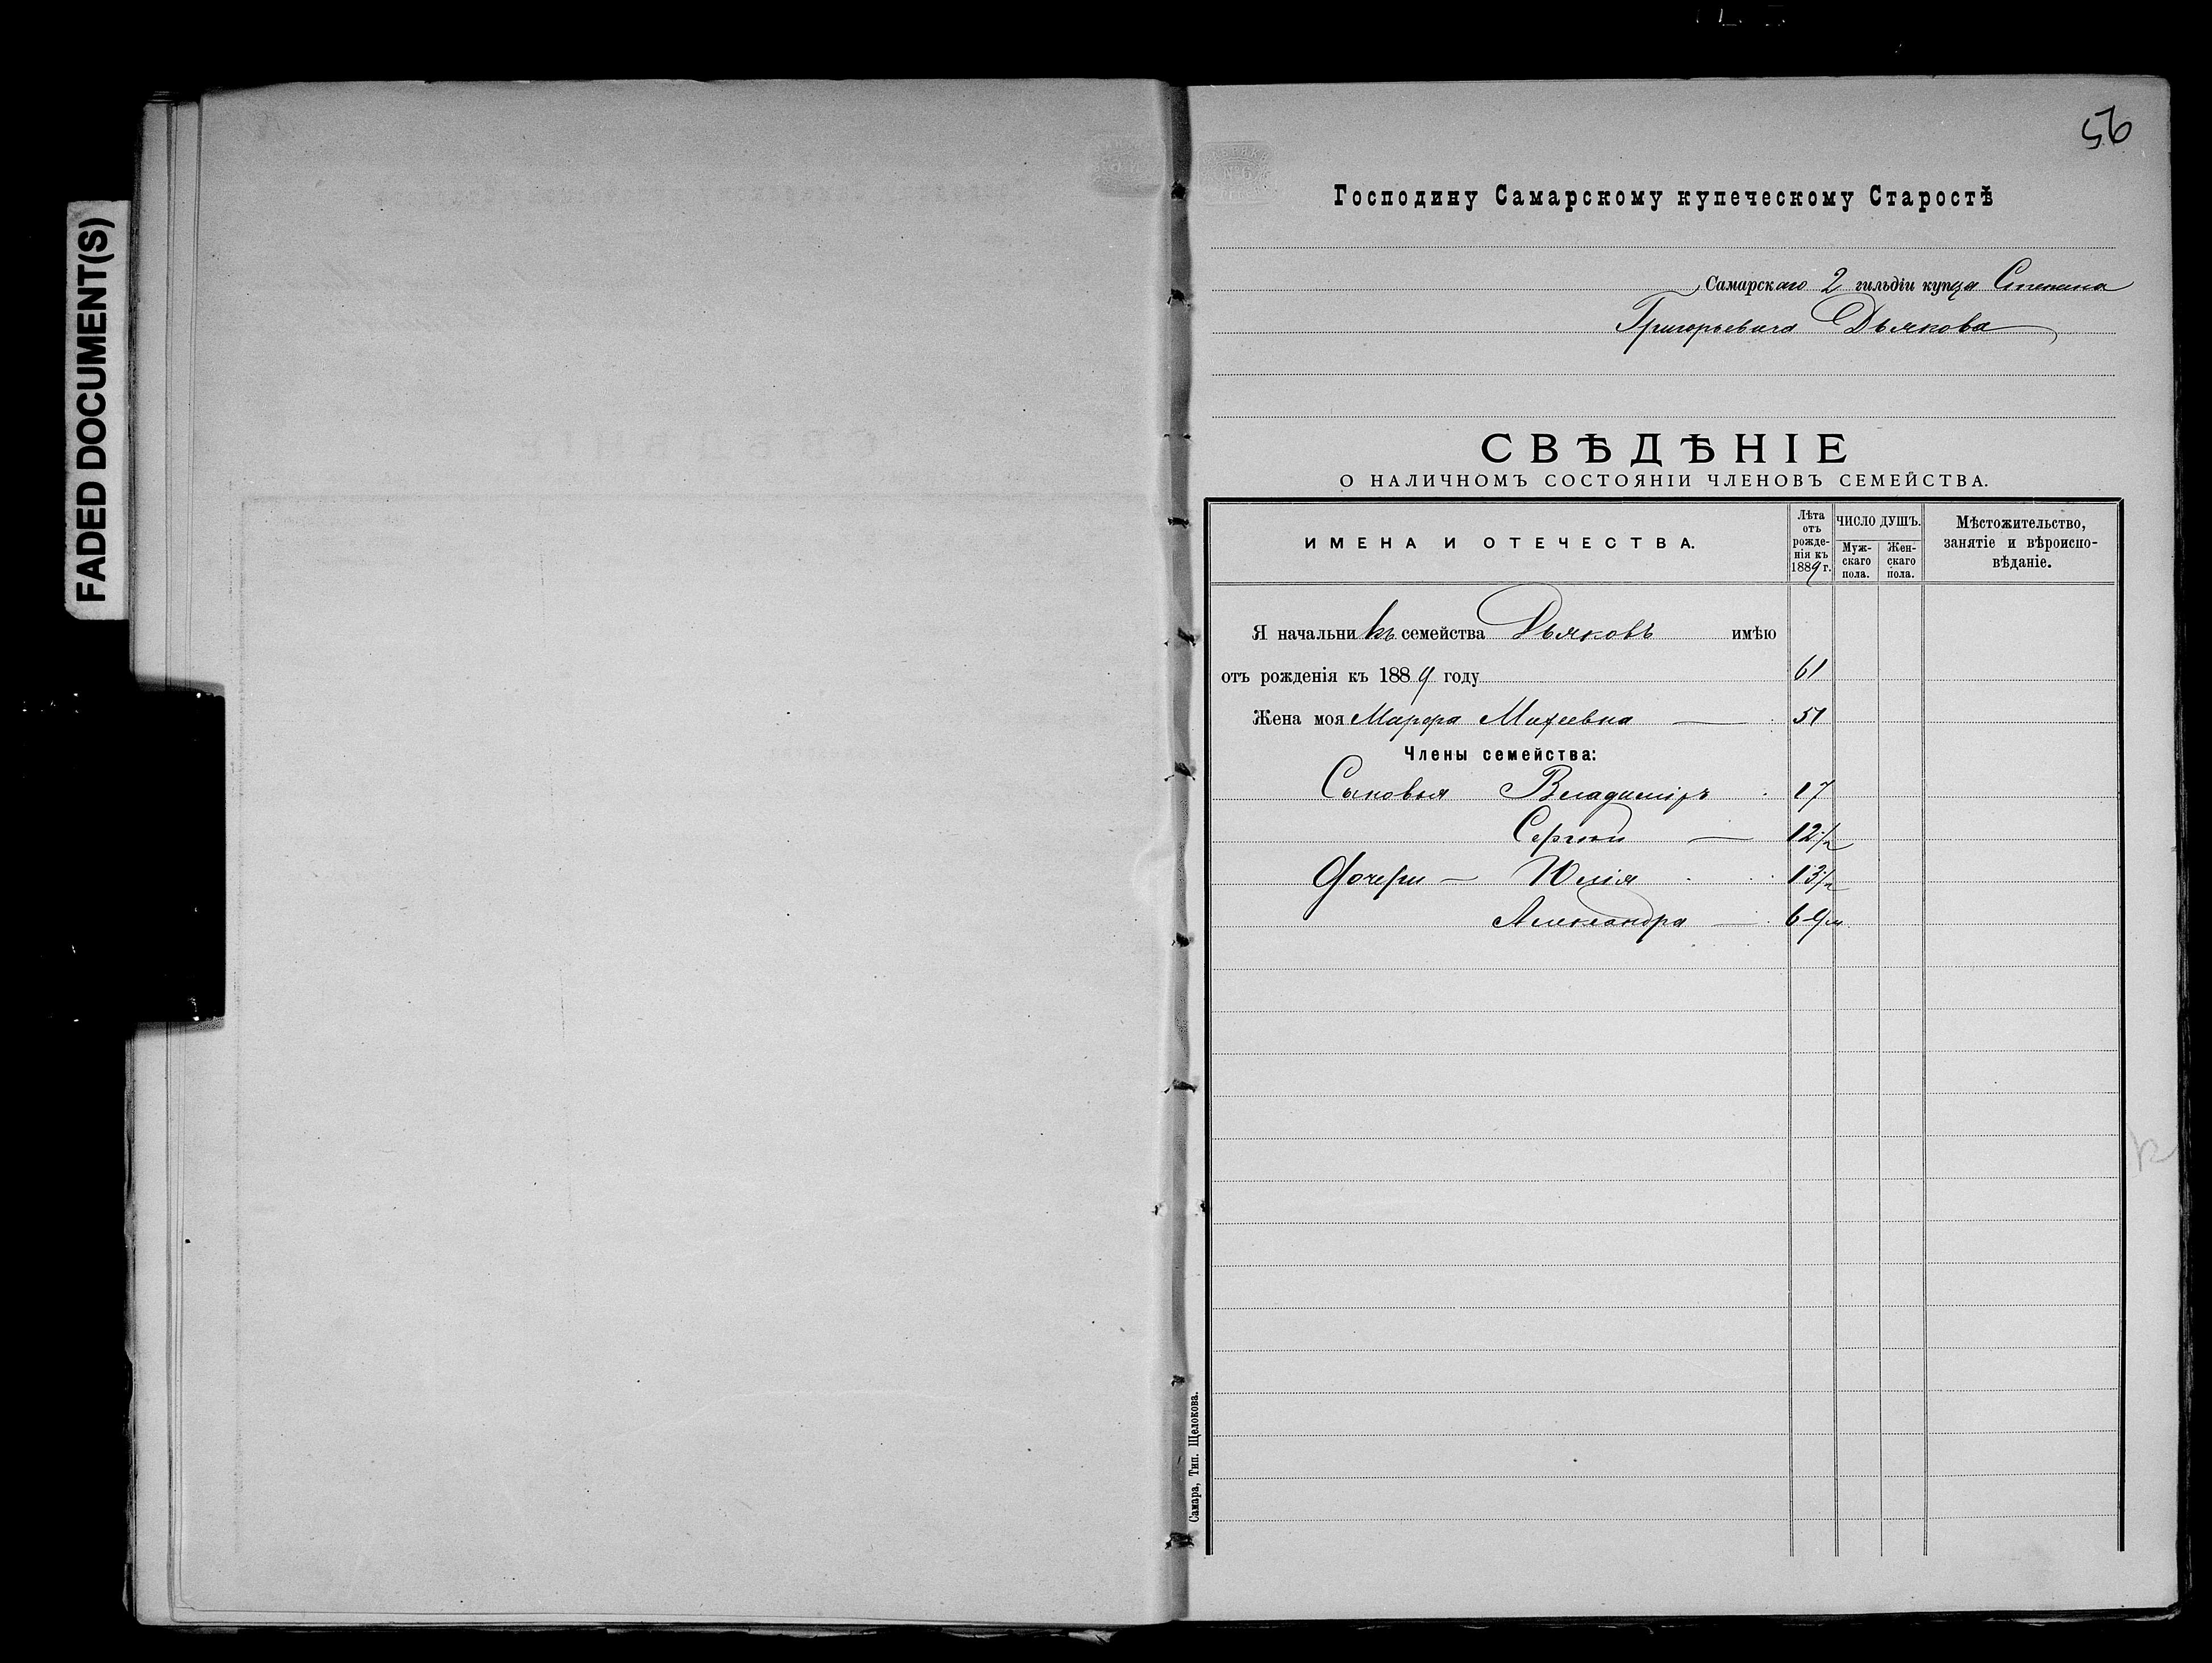 FADED DOCUMENT(S)
56
Господину Самарскому купеческому Старостѣ
Самарскаго 2 гильдіи купца Степана
Григорьевича Дьякова
СВѢДѢНІЕ
О НАЛИЧНОМЪ СОСТОЯНІИ ЧЛЕНОВЪ СЕМЕЙСТВА.
ИМЕНА И ОТЕЧЕСТВА.
Лѣта отъ рожде-нія къ 1889 г.
ЧИСЛО ДУШЪ.
Муж-скаго пола.
Жен-скаго пола.
Мѣстожительство, занятіе и вѣроиспо-вѣданіе.
Я начальникъ семейства Дьяковъ имѣю
отъ рожденія къ 1889 году 61
Жена моя Марфа Михеевна — 51
Члены семейства:
Сыновья Владиміръ 17
Сергѣй — 12 1/2
Дочери — Юлія 13 1/2
Александра — 6 9 м
Самара, Тип. Щелокова.